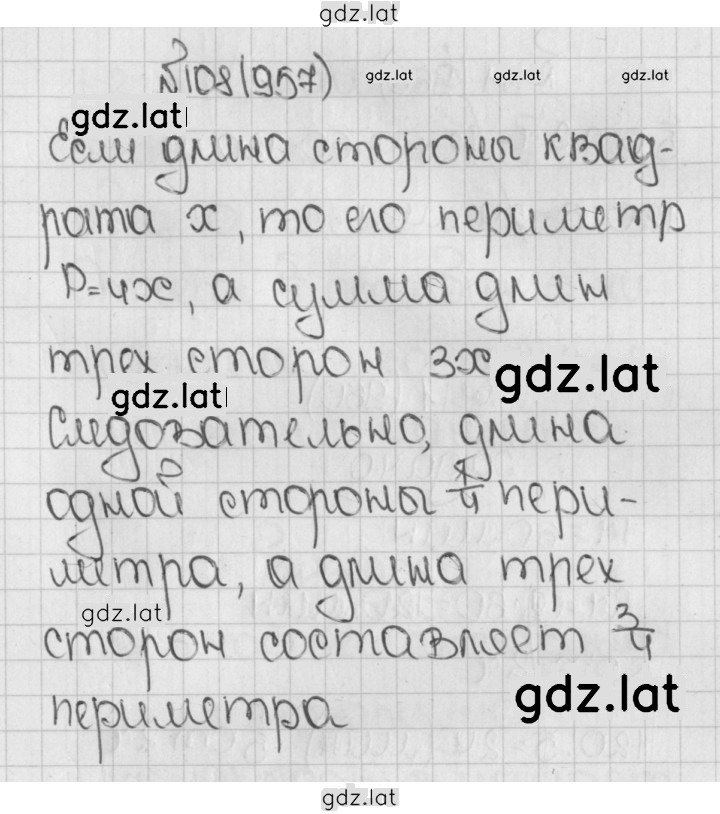 gdz.lat
№108(957) gdz.lat gdz.lat gdz.lat
gdz.lat
Если длина стороны квад-
рата x, то его периметр
P=4x, а сумма длин
трех сторон 3x gdz.lat
gdz.lat
Следовательно, длина
одной стороны 1/4 пери-
метра, а длина трех
gdz.lat
сторон составляет 3/4
gdz.lat
периметра
gdz.lat